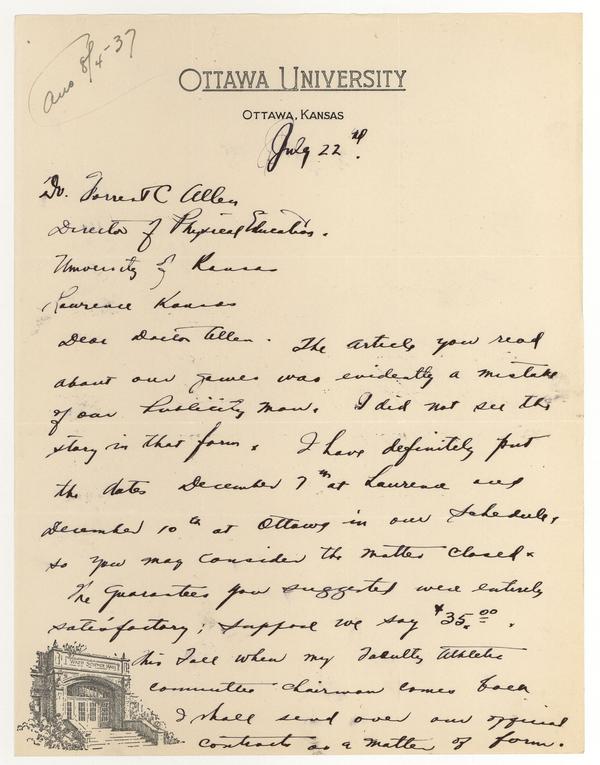 ans 8/4-37
OTTAWA UNIVERSITY
OTTAWA, KANSAS
July 22nd.
Dr. Forrest C Allen
Director of Physical Education.
University of Kansas
Lawrence Kansas
Dear Doctor Allen. The article you read
about our games was evidently a mistake
of our Publicity man. I did not see the
story in that form. I have definitely put
the dates December 7th at Lawrence and
December 10th at Ottawa in our schedule,
so you may consider the matter closed.
The Guarantees you suggested were entirely
satisfactory; suppose we say $35.00.
This Fall when my Faculty Athletic
committee chairman comes back
I shall send over our official
contracts as a matter of form.